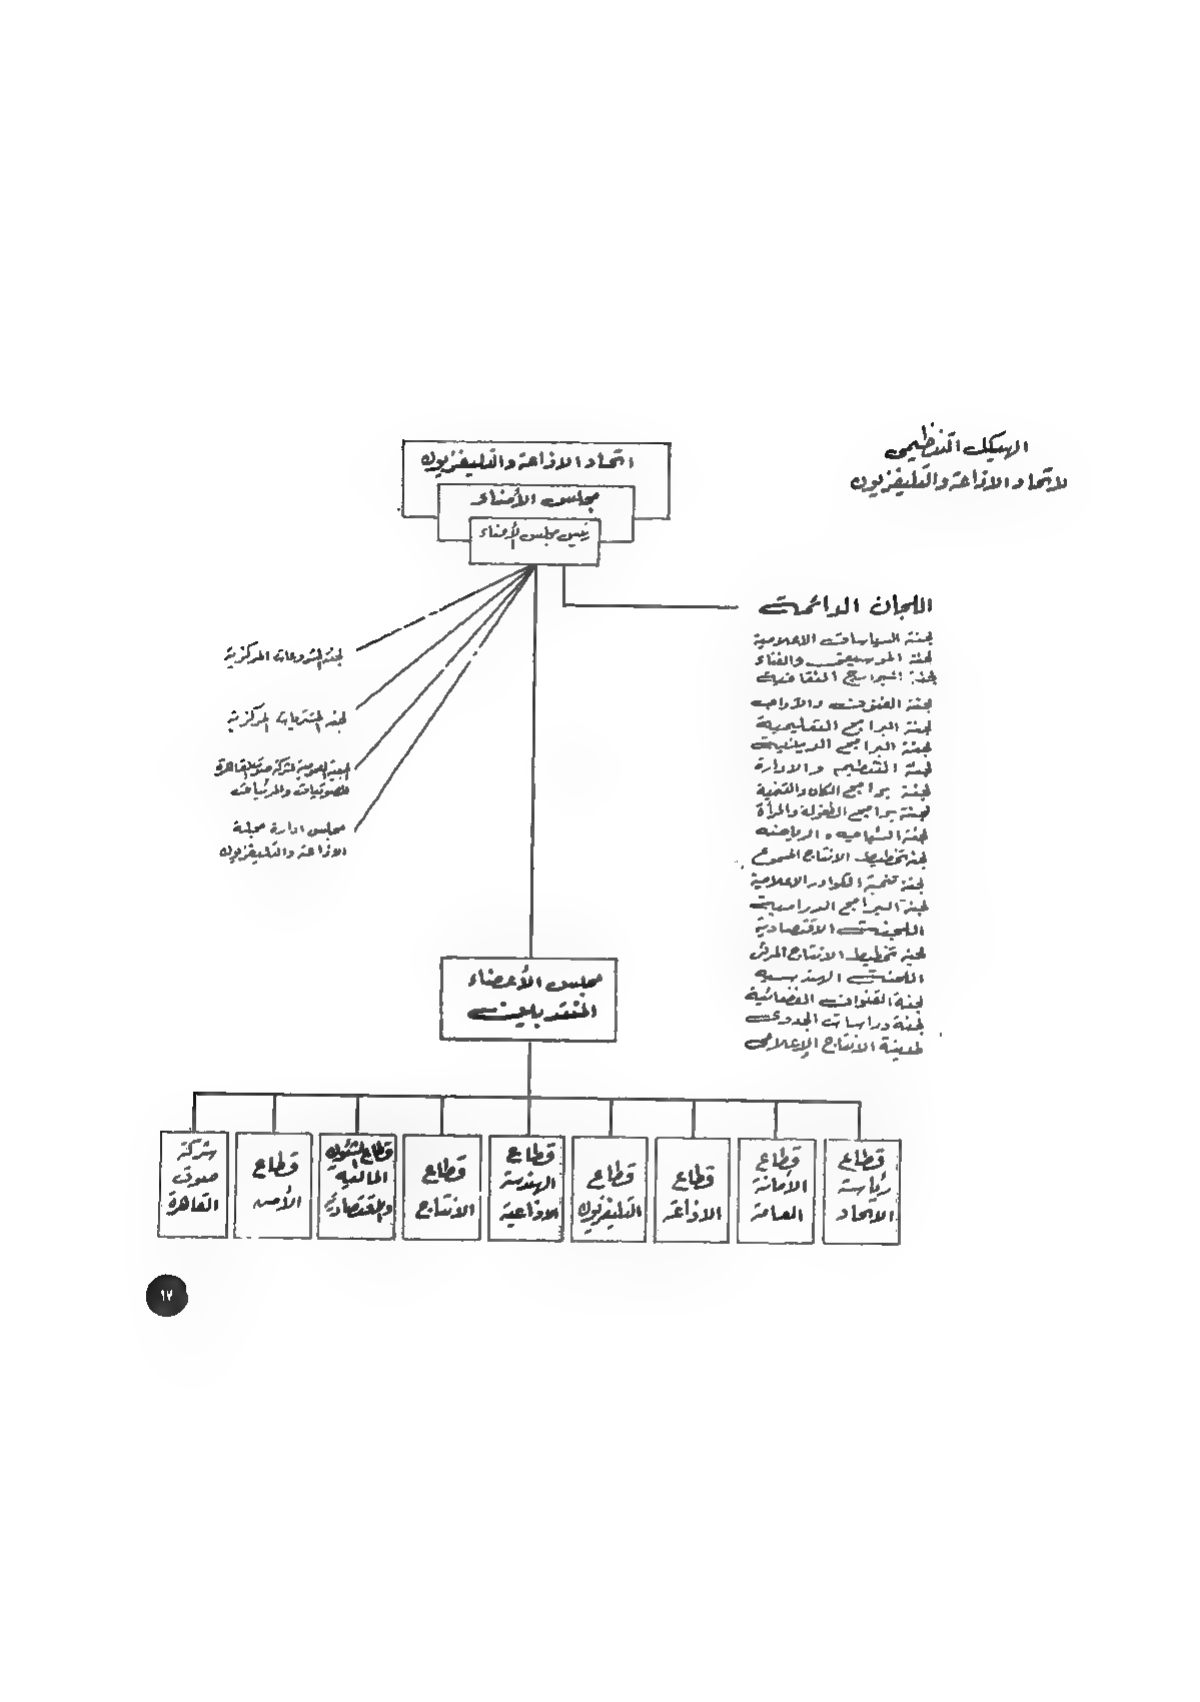 الهيكل التنظيمى
لاتحاد الاذاعة والتليفزيون
اتحاد الاذاعة والتليفزيون
مجلس الأمناء
رئيس مجلس الأمناء
اللجان الدائمة
لجنة السياسات الاعلامية
لجنة الموسيقى والغناء
لجنة البرامج الثقافية
لجنة الفنون والآداب
لجنة البرامج التعليمية
لجنة البرامج الدينية
لجنة التنظيم والادارة
لجنة برامج السكان والتنمية
لجنة برامج الطفولة والمرأة
لجنة الشباب والرياضة
لجنة تخطيط الانتاج المسموع
لجنة تنمية الكوادر الاعلامية
لجنة البرامج الدرامية
اللجنة الاقتصادية
لجنة تخطيط الانتاج المرئى
اللجنة الهندسية
لجنة القنوات الفضائية
لجنة دراسات الجدوى
لمدينة الانتاج الإعلامى
لجنة المشروعات المركزية
لجنة المشتريات المركزية
الجمعية العمومية لشركة صوت القاهرة
للصوتيات والمرئيات
مجلس ادارة مجلة
الاذاعة والتليفزيون
مجلس الأعضاء
المنتدبين
قطاع
رئاسة
الاتحاد
قطاع
الأمانة
العامة
قطاع
الاذاعة
قطاع
التليفزيون
قطاع
الهندسة
الاذاعية
قطاع
الانتاج
قطاع الشئون
المالية
والاقتصادية
قطاع
الأمن
شركة
صوت
القاهرة
١٢